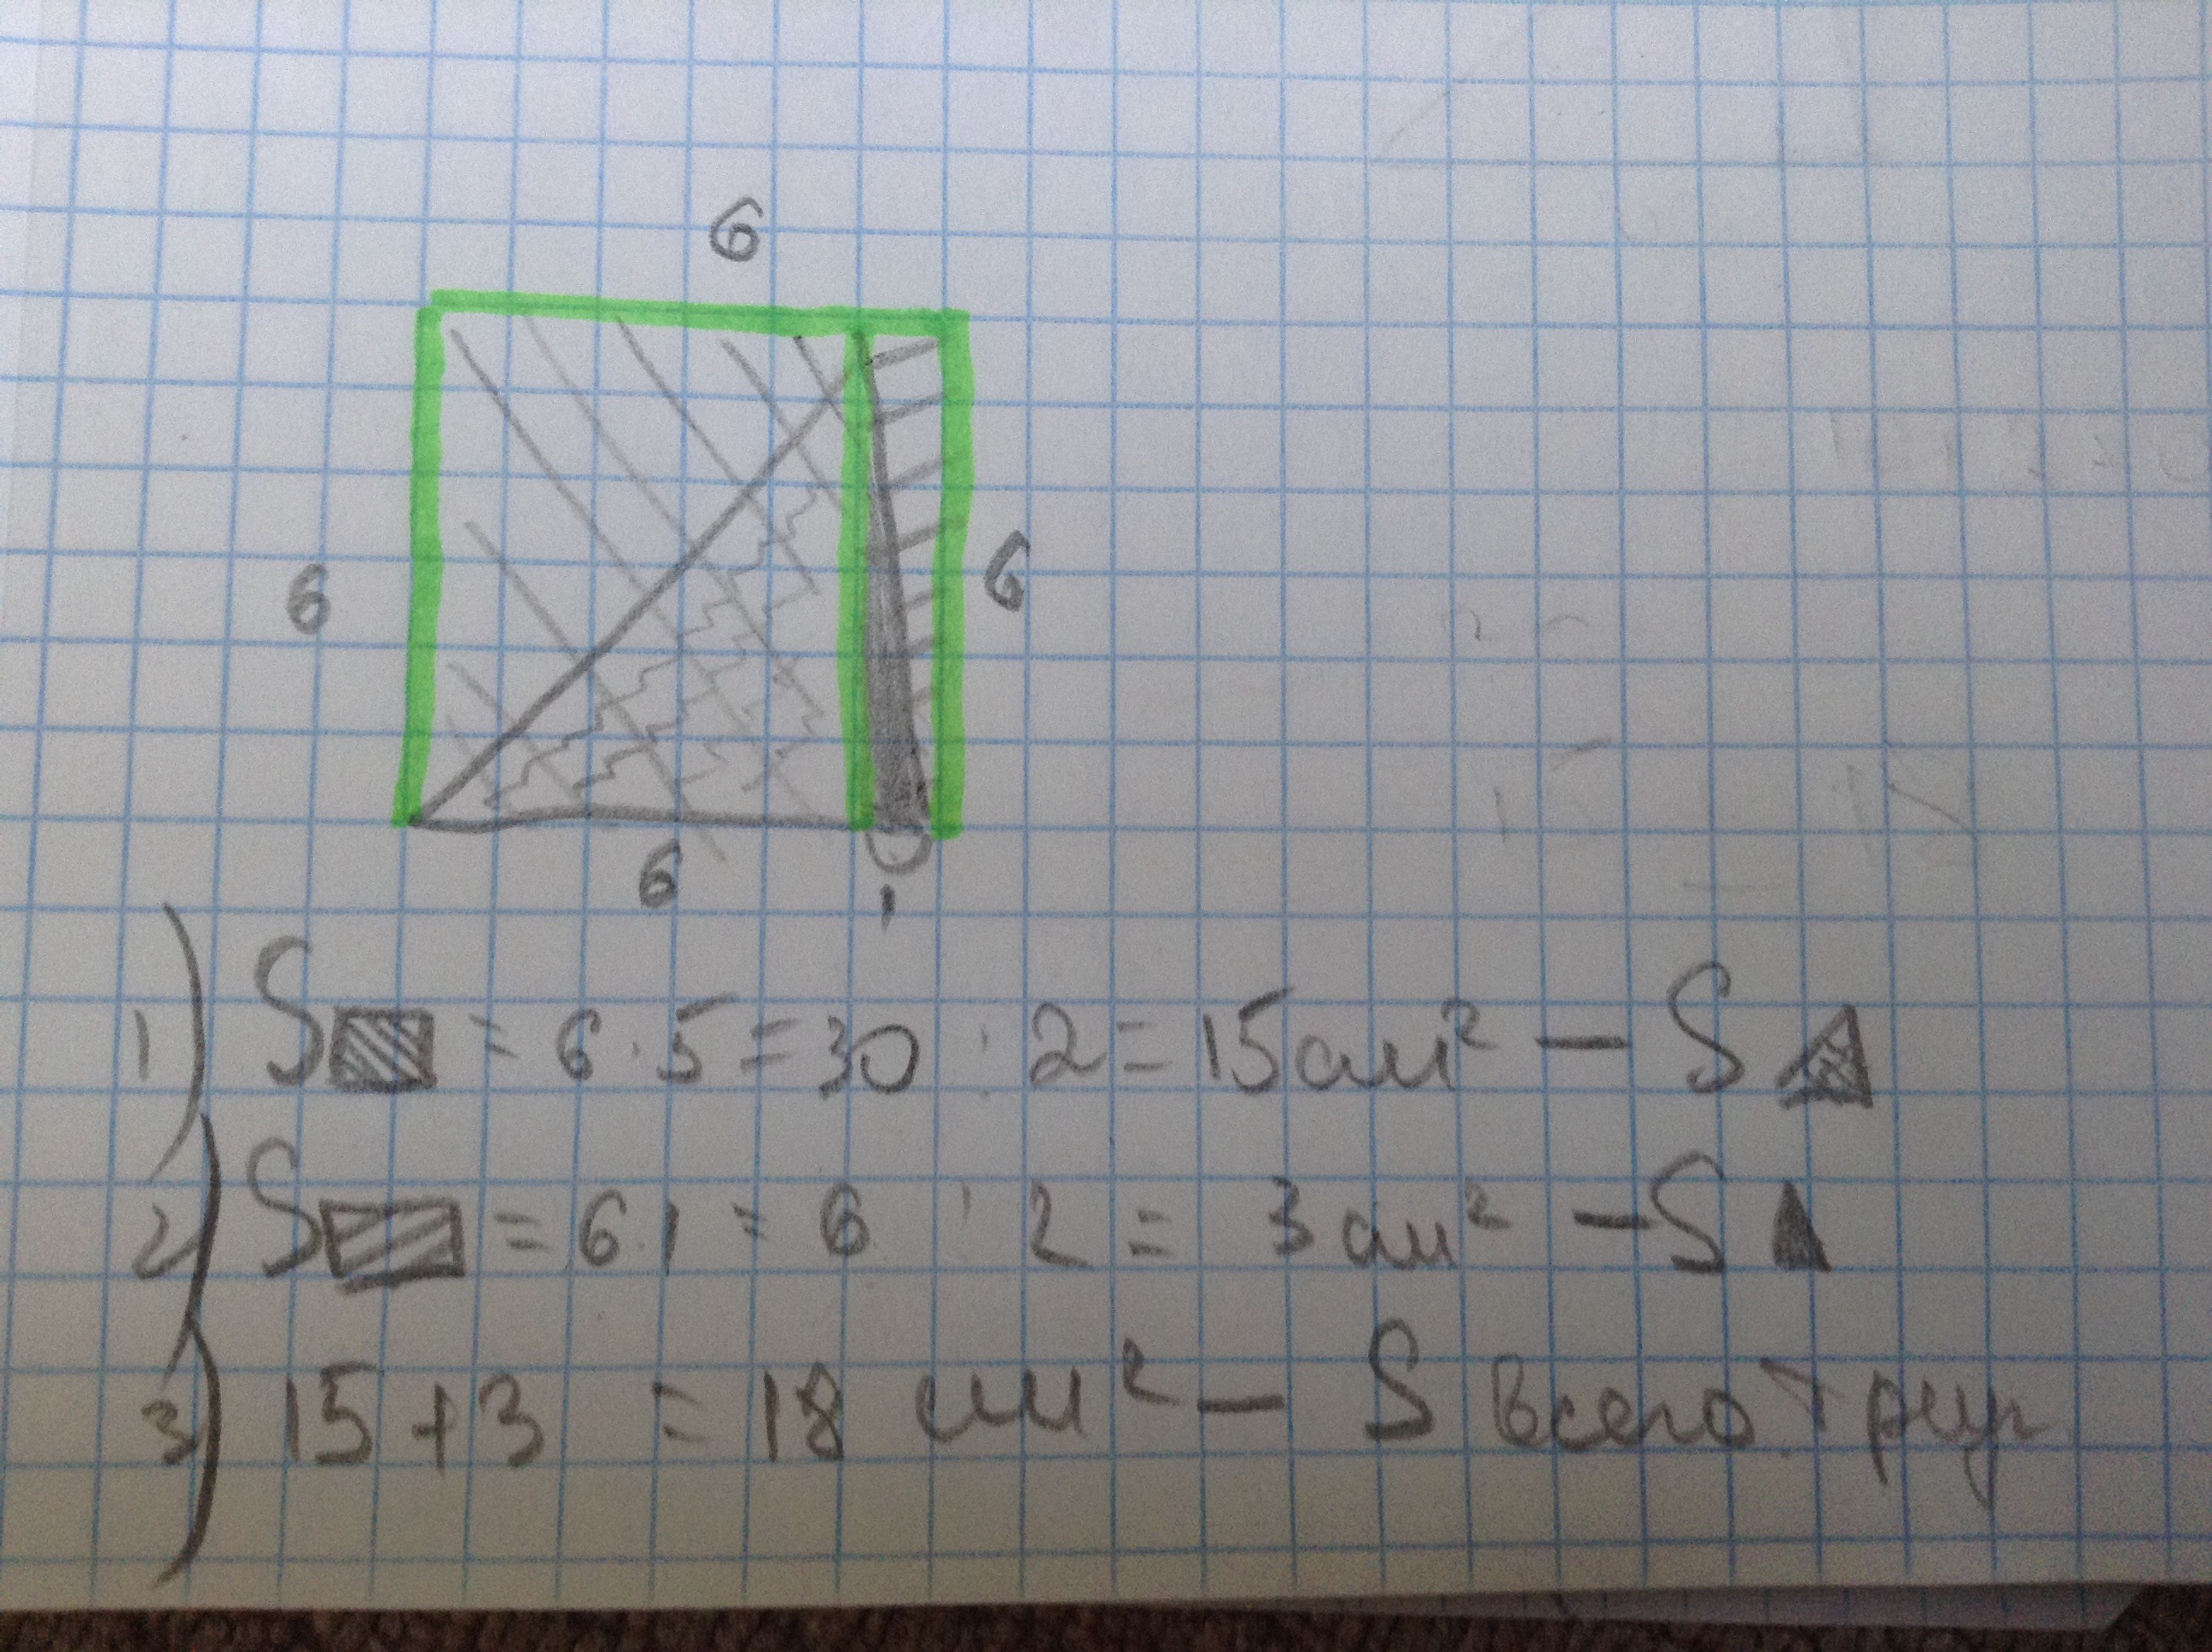 6
6
6
6
1
1) S = 6 · 5 = 30 : 2 = 15 см² — S
2) S = 6 1 = 6 : 2 = 3 см² — S
3) 15 + 3 = 18 см² — S всего